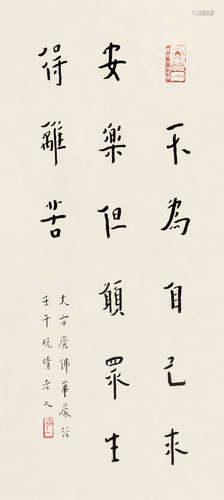 不為自己求
安樂但願眾生
得離苦
大方廣佛華嚴經
壬午晚晴老人